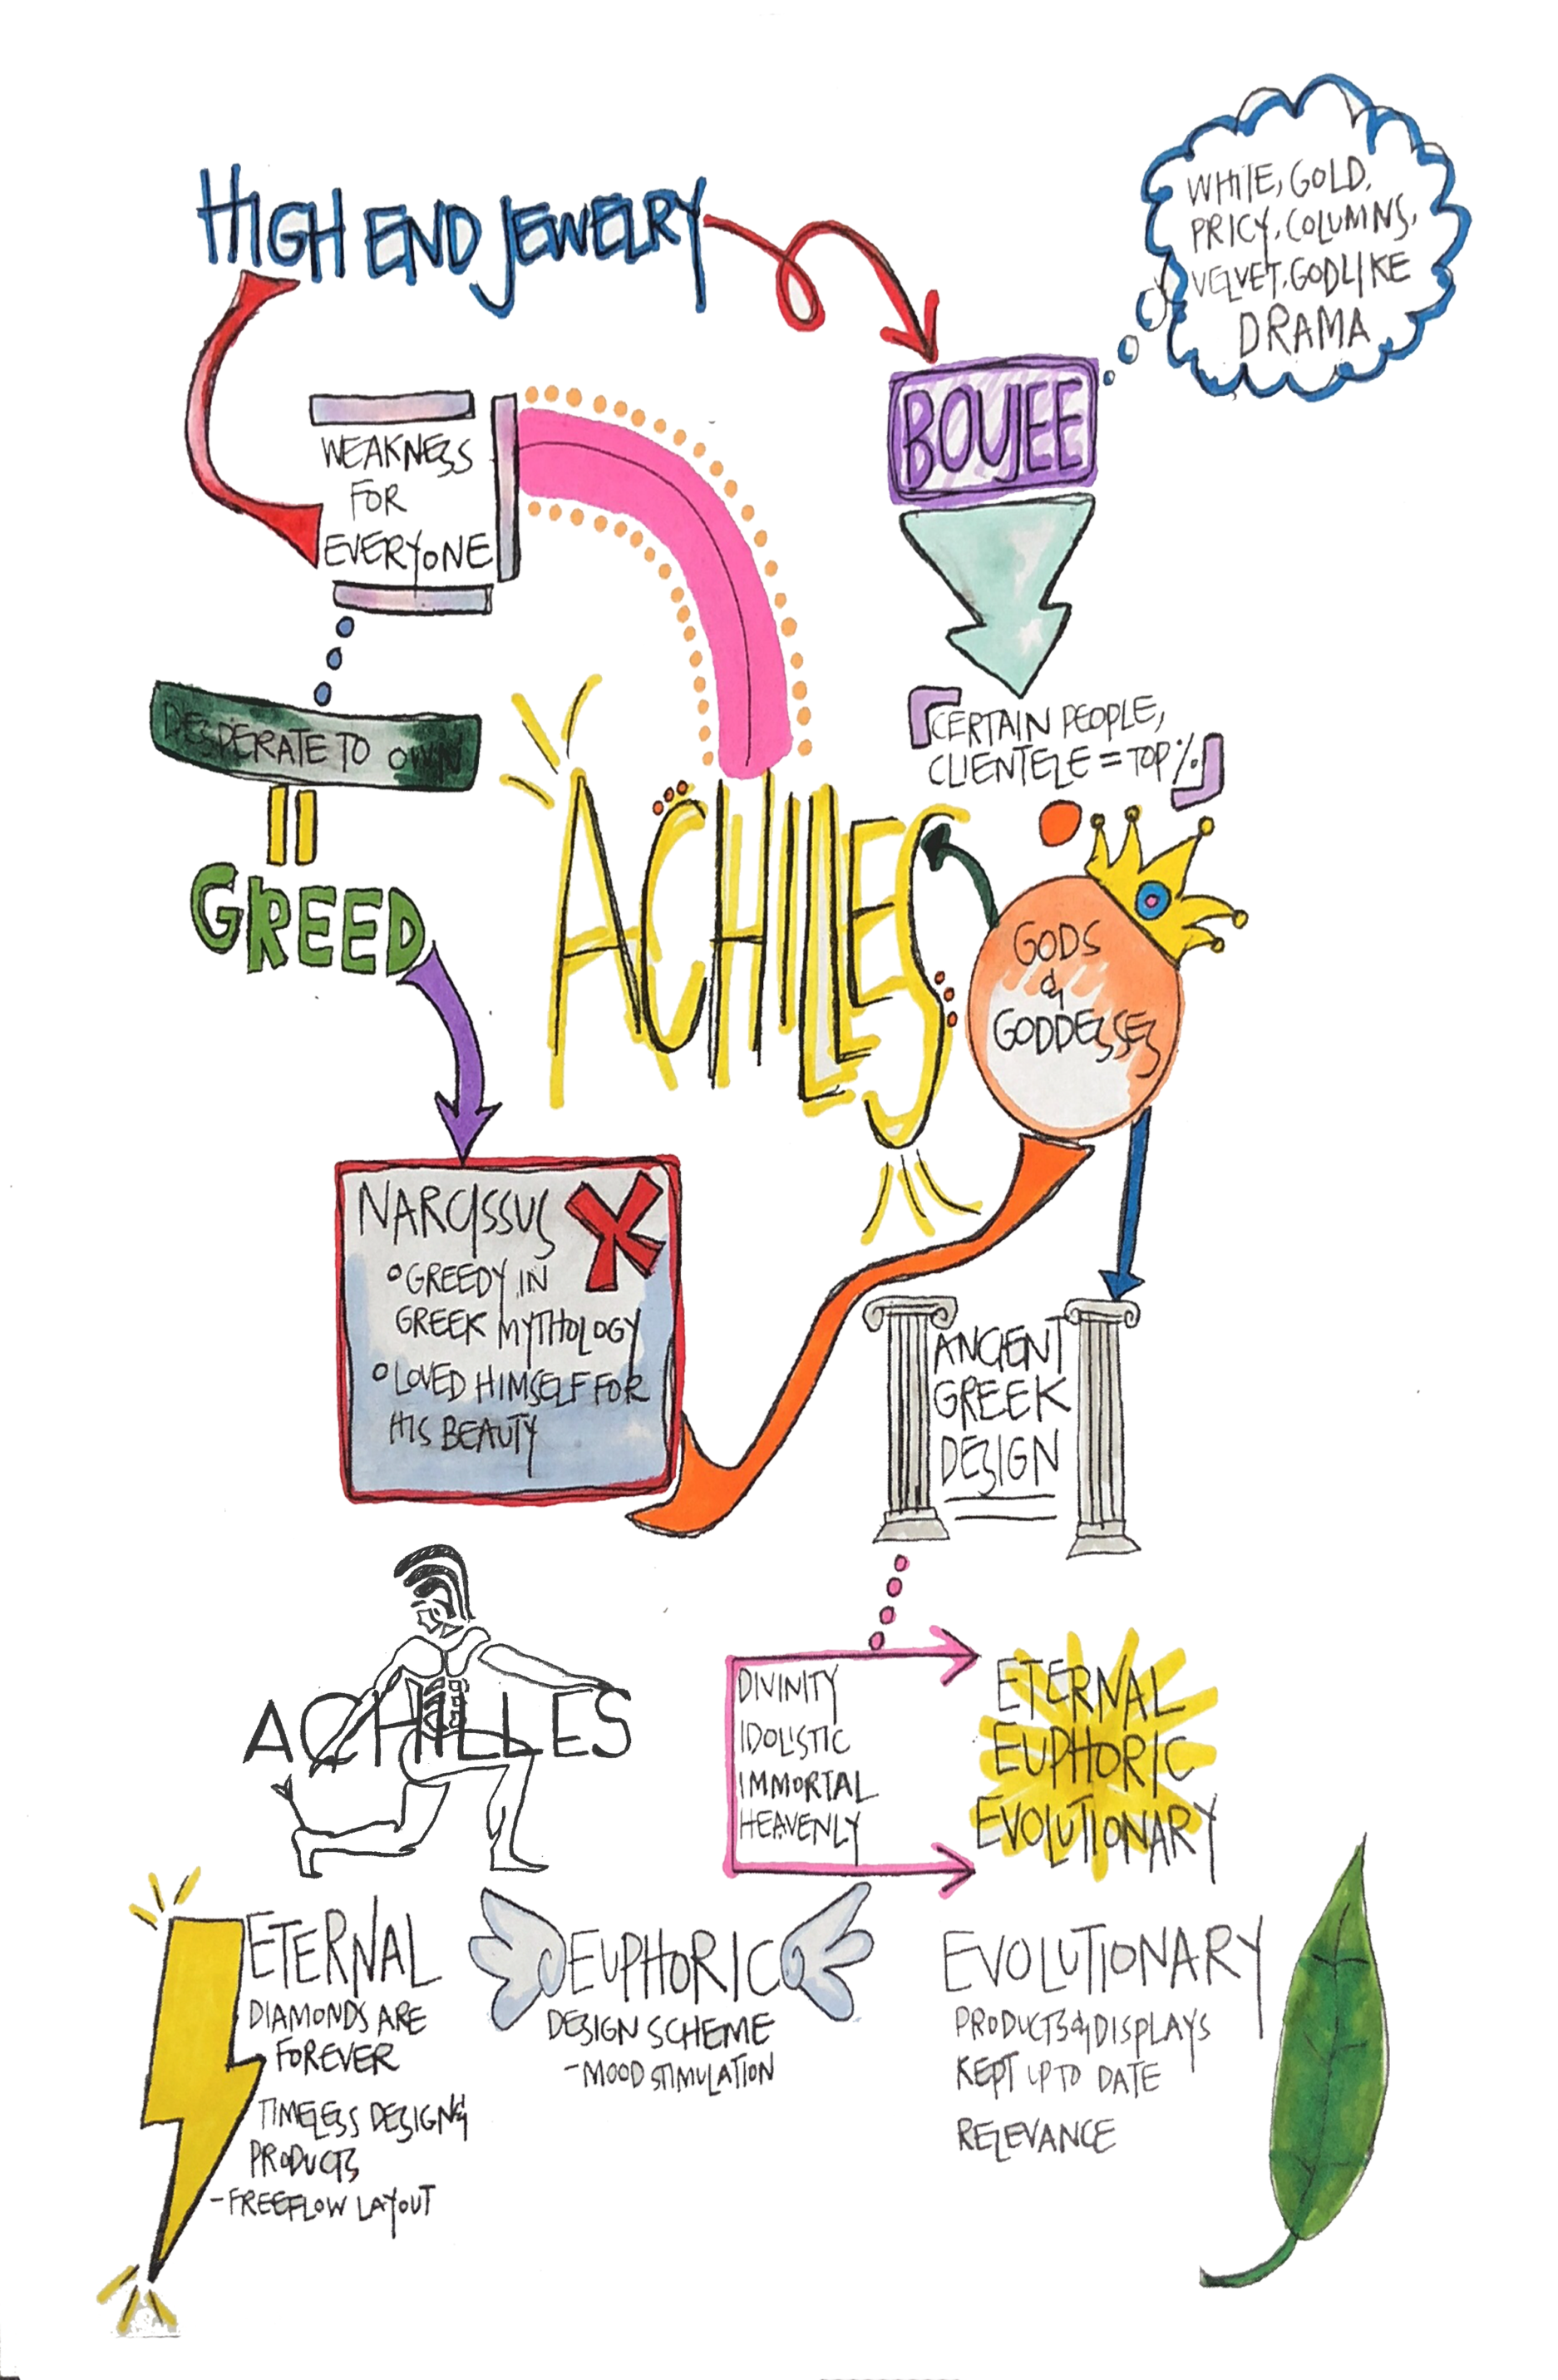 HIGH END JEWELRY
WHITE, GOLD,
PRICY, COLUMNS,
VELVET, GODLIKE
DRAMA
BOUJEE
WEAKNESS
FOR
EVERYONE
DESPERATE TO OWN
GREED
CERTAIN PEOPLE,
CLIENTELE = TOP %
ACHILLES
GODS
&
GODDESSES
NARCISSUS
GREEDY IN
GREEK MYTHOLOGY
LOVED HIMSELF FOR
HIS BEAUTY
ANCIENT
GREEK
DESIGN
ACHILLES
DIVINITY
IDOLISTIC
IMMORTAL
HEAVENLY
ETERNAL
EUPHORIC
EVOLUTIONARY
ETERNAL
DIAMONDS ARE
FOREVER
TIMELESS DESIGN &
PRODUCTS
-FREEFLOW LAYOUT
EUPHORIC
DESIGN SCHEME
-MOOD STIMULATION
EVOLUTIONARY
PRODUCTS & DISPLAYS
KEPT UP TO DATE
RELEVANCE